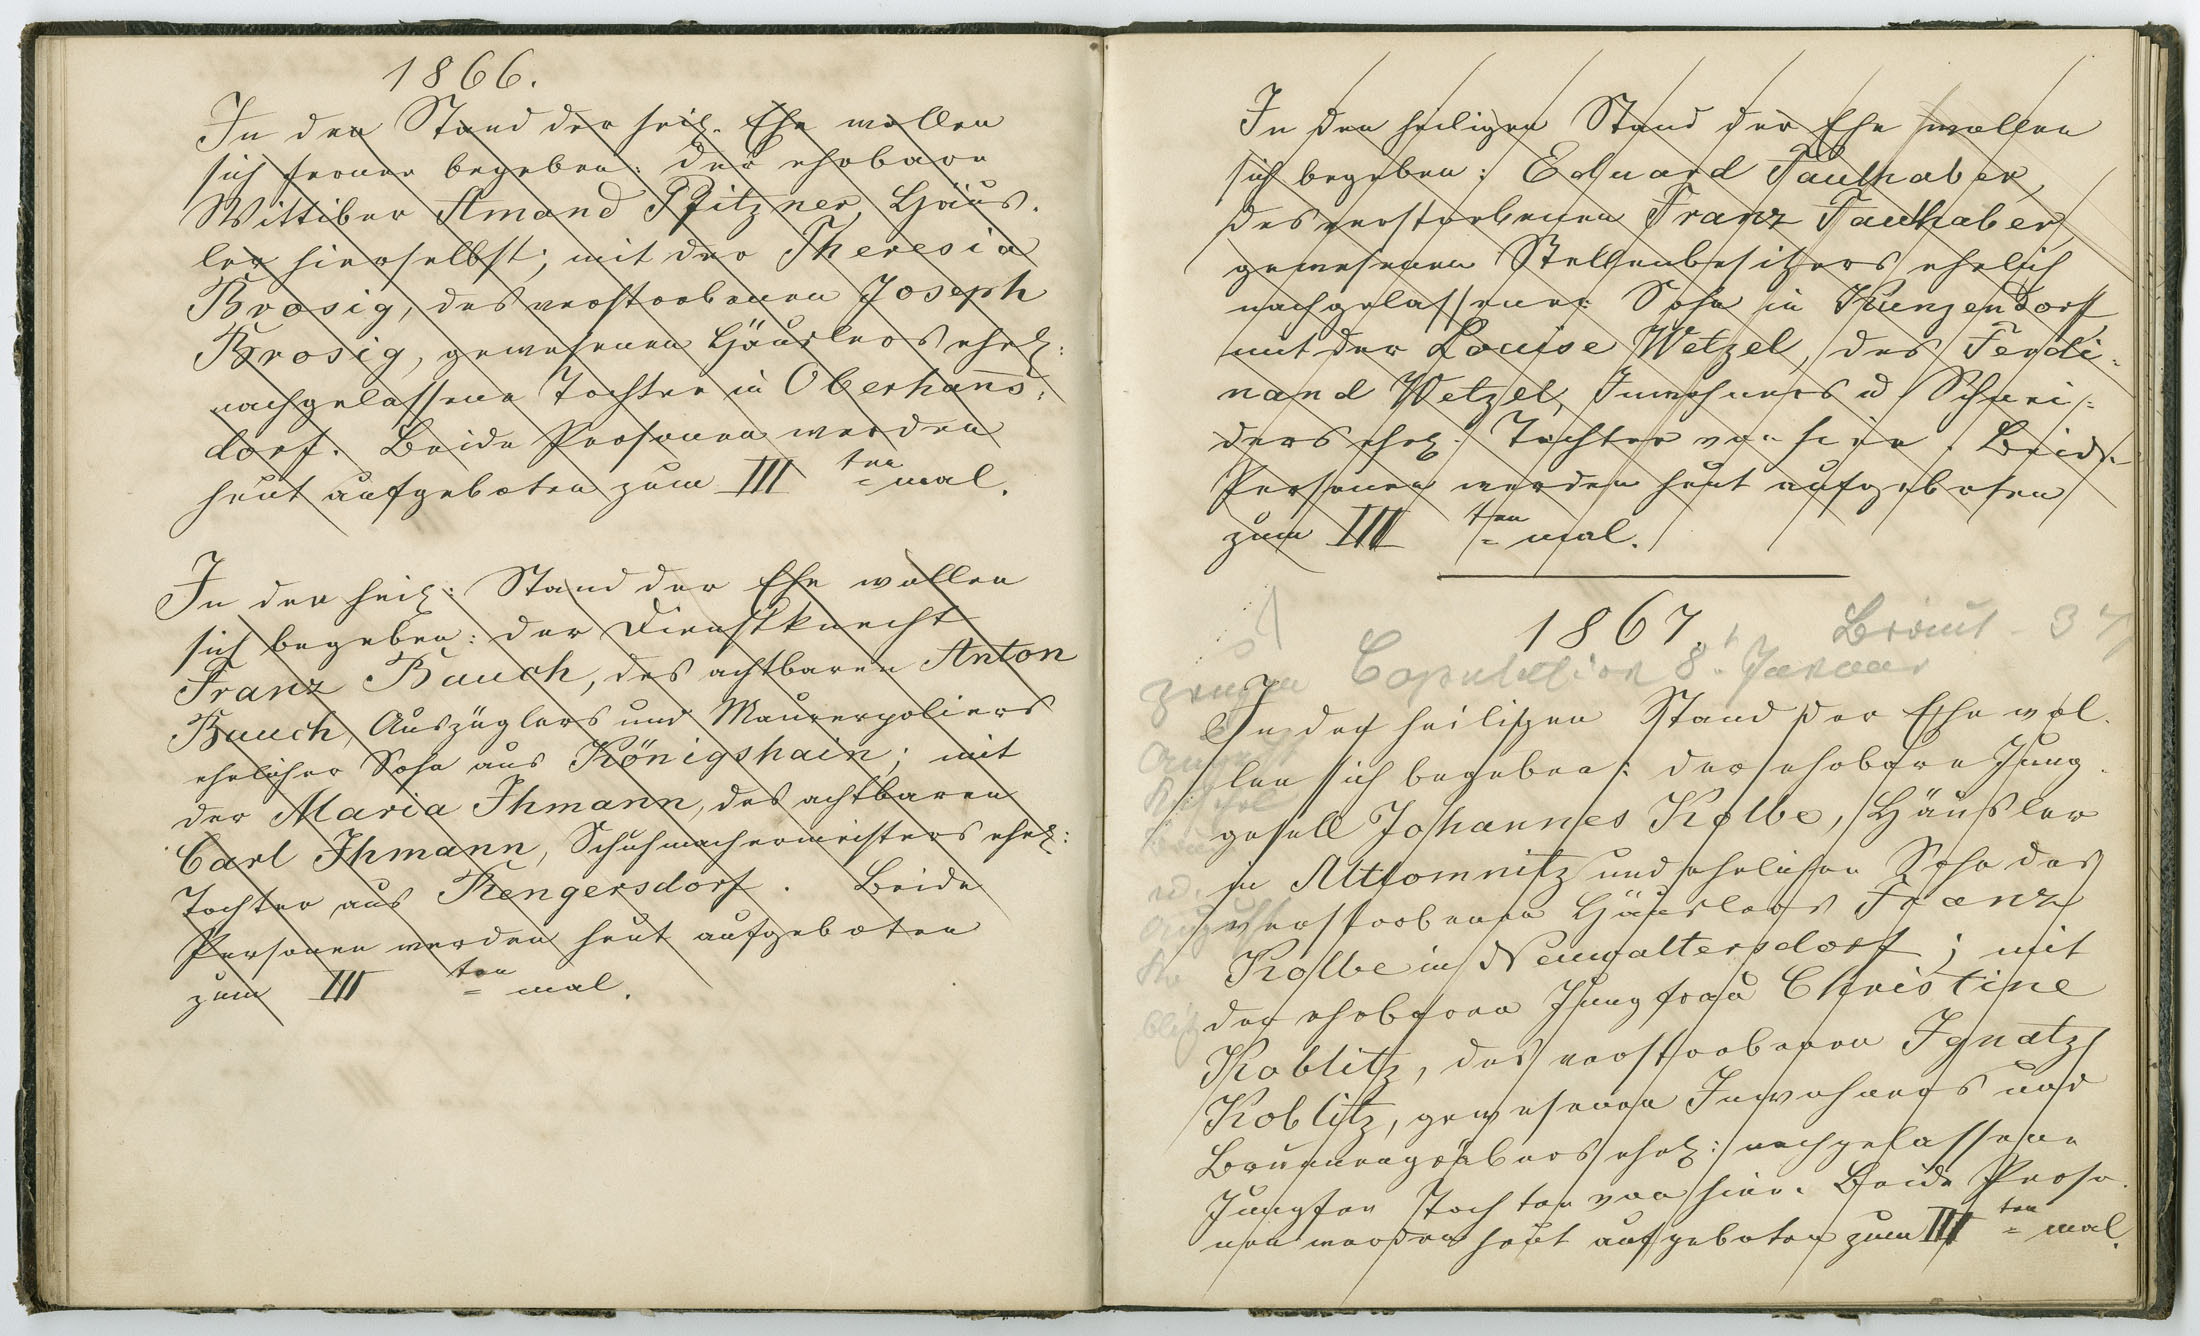 1866.
In den Stand der heil. Ehe wollen
sich ferner begeben: der ehrbare
Wittiber Amand Pfitzner, Häus-
ler hierselbst; mit der Theresia
Brosig, des verstorbenen Joseph
Brosig, gewesenen Häuslers ehel:
nachgelassene Tochter in Oberhanns-
dorf. Beide Personen werden
heut aufgeboten zum III ten mal.
In den heil: Stand der Ehe wollen
sich begeben: der Dienstknecht
Franz Bauch, des achtbaren Anton
Bauch, Auszüglers und Maurerpoliers
ehelicher Sohn aus Königshain; mit
der Maria Ihmann, des achtbaren
Carl Ihmann, Schuhmachermeisters ehel:
Tochter aus Rengersdorf. Beide
Personen werden heut aufgeboten
zum III ten mal.
In den heiligen Stand der Ehe wollen
sich begeben: Eduard Tauthaber,
des verstorbenen Franz Tauthaber,
gewesenen Stellenbesitzers ehelich
nachgelassener Sohn in Kunzendorf
mit der Louise Wetzel, des Ferdi-
nand Wetzel, Inwohners u Schnei-
ders ehel: Tochter von hier. Beide
Personen werden heut aufgeboten
zum III ten mal.
1867. Braut - 37
Zeugen Copulation 8t. Januar
In den heiligen Stand der Ehe wol-
len sich begeben: der ehrbare Jung-
gesell Johannes Kolbe, Häusler
in Altlomnitz und ehelicher Sohn des
verstorbenen Häuslers Franz
Kolbe in Neuwaltersdorf; mit
der ehrbaren Jungfrau Christine
Koblitz, des verstorbenen Ignatz
Koblitz, gewesenen Inwohners und
Brunnengräbers ehel: nachgelassene
Jungfer Tochter von hier. Beide Perso-
nen werden heut aufgeboten zum III ten mal.